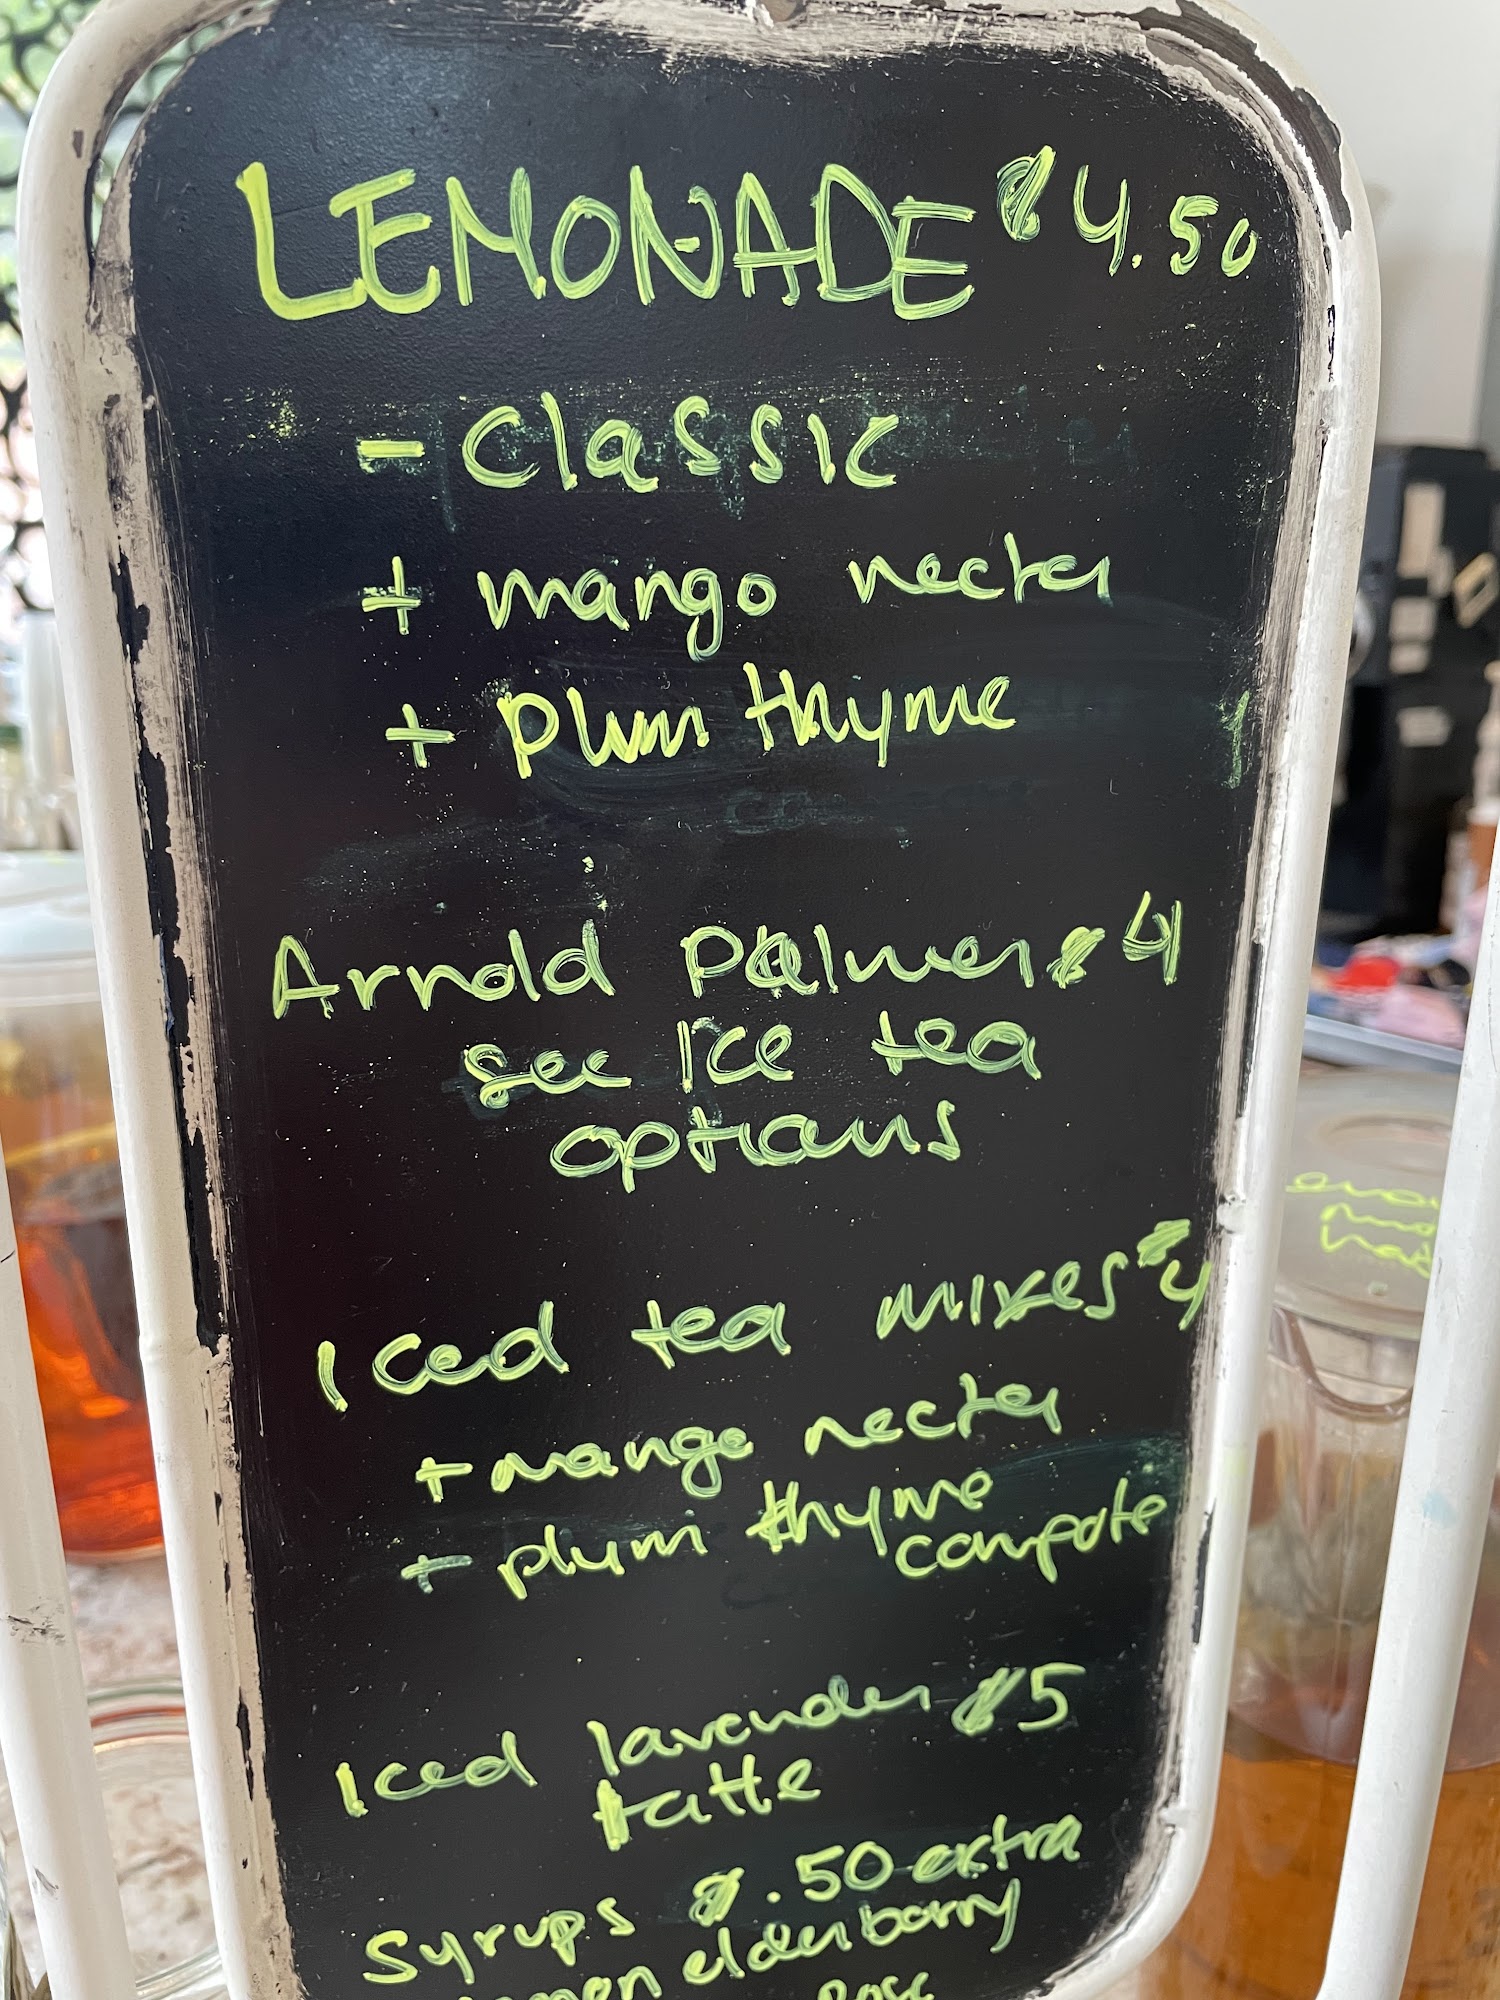 LEMONADE $4.50
- Classic
+ mango necter
+ plum thyme
Arnold Palmer $4
see Ice tea
options
Iced tea mixes $4
+ mango necter
+ plum thyme
compote
Iced lavender $5
Latte
Syrups $.50 extra
elderberry
Rose